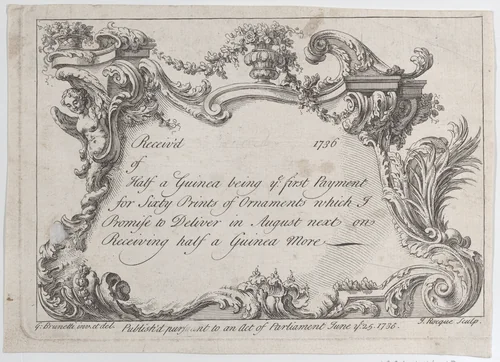 Receiv'd 1736
of
Half a Guinea being yᵉ. first Payment
for Sixty Prints of Ornaments which I
Promise to Deliver in August next on
Receiving half a Guinea More
G: Brunetti inv. et del. Publish'd pursuant to an Act of Parliament June yᵉ. 25. 1736. J. Rocque Sculp.